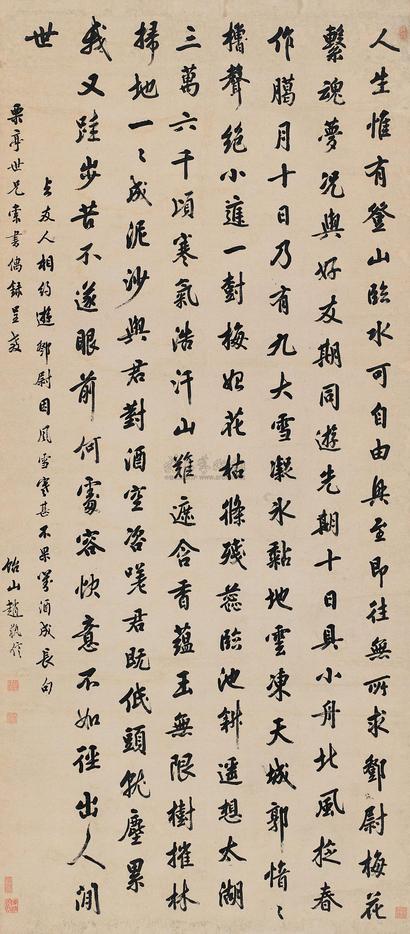 人生惟有登山臨水可自由興至即往無所求鄧尉梅花
繫魂夢況與好友期同遊先期十日具小舟北風捉春
作臈月十日乃有九大雪凝氷黏地雲凍天城郭愔〻
櫓聲絕小進一對梅妲花枯條殘蕊臨池斜遥想太湖
三萬六千頃寒氣浩汗山難遮含香蘊玉無限樹摧林
掃地一〻成泥沙與君對酒空咨嗟君既低頭就塵累
我又跬步苦不遂眼前何處容快意不如徑出人間
世
與友人相約遊鄧尉因風雪寒甚不果對酒成長句
栗亭世兄索書偶錄呈教
飴山趙執信